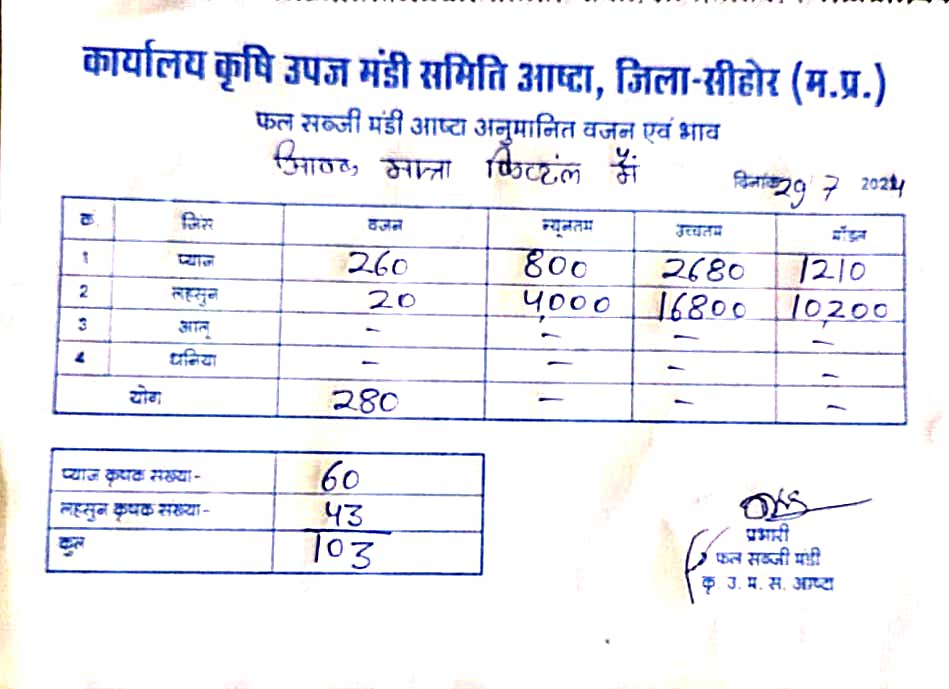 कार्यालय कृषि उपज मंडी समिति आष्टा, जिला-सीहोर (म.प्र.)
फल सब्जी मंडी आष्टा अनुमानित वजन एवं भाव
आवक मात्रा क्विंटल में
दिनांक 29 7 2024
क्र. जिंस वजन न्यूनतम उच्चतम मॉडल
1 प्याज 260 800 2680 1210
2 लहसुन 20 4,000 16800 10,200
3 आलू - - - -
4 धनिया - - - -
योग 280 - - -
प्याज कृषक संख्या- 60
लहसुन कृषक संख्या- 43
कुल 103
प्रभारी
फल सब्जी मंडी
कृ. उ. म. स. आष्टा